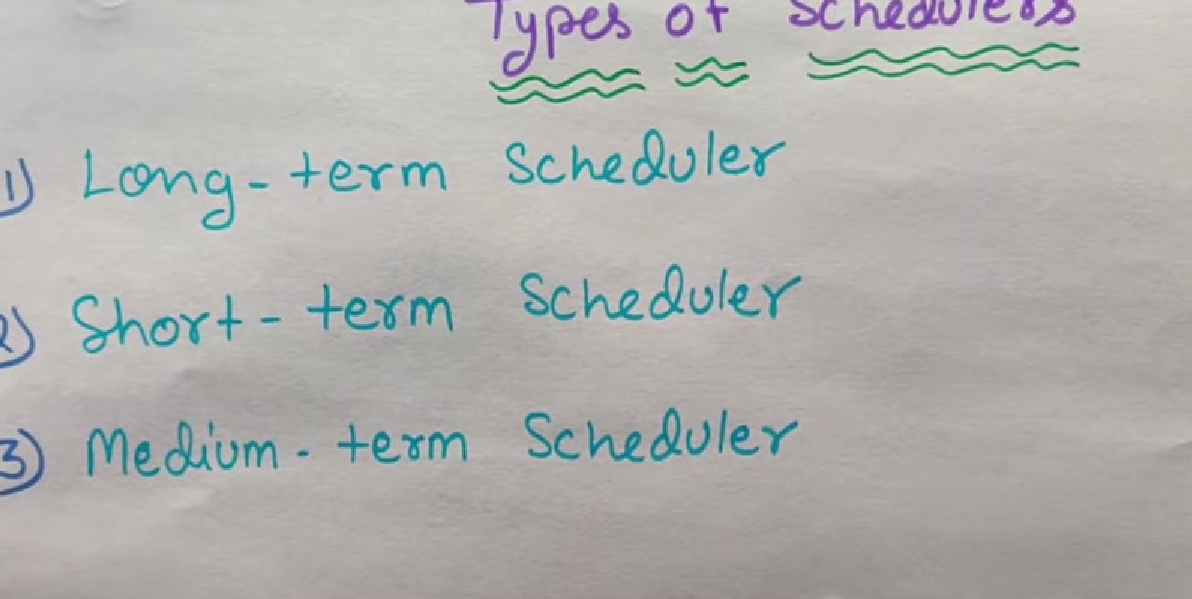 Types of Schedulers
1) Long-term Scheduler
2) Short-term Scheduler
3) Medium-term Scheduler